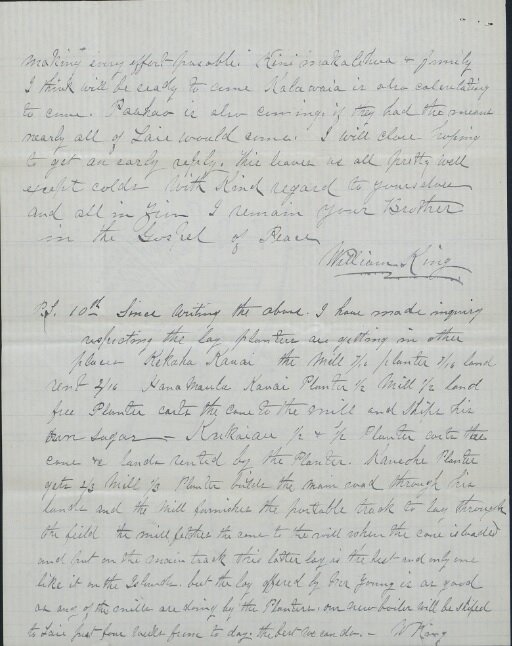 making every effort possible. Kinimakalehua & family
I think will be ready to come Kalawaia is also calculating
to come. Paakao is also coming, if they had the means
nearly all of Laie would come. I will close hoping
to get an early reply. this leaves us all pretty well
except colds. With Kind regard to yourselves
and all in Zion I remain your Brother
in the Gospel of Peace
William King
P.S. 10th Since writing the above. I have made inquiry
respecting the lay planters are getting in other
places Kekaha Kauai the Mill 7/16 planter 7/16 land
rent 2/16 HanaMaulu Kauai Planter 1/2 Mill 1/2 land
free Planter carts the cane to the mill and ships his
own sugar — Kukaiau 1/2 & 1/2 Planter carts the
cane & lands rented by the Planter. Kaneohe Planter
gets 2/3 Mill 1/3 Planter builds the main road through his
lands and the Mill furnishes the portable track to lay through
the field the mill fetches the cane to the mill when the cane is loaded
and put on the main track this latter lay is the best and only one
like it on the Islands. but the lay offered by Pre Young is as good
as any of the mills are doing by the Planters. our new boiler will be shiped
to Laie just four weeks from to day. the best we can do. — W King